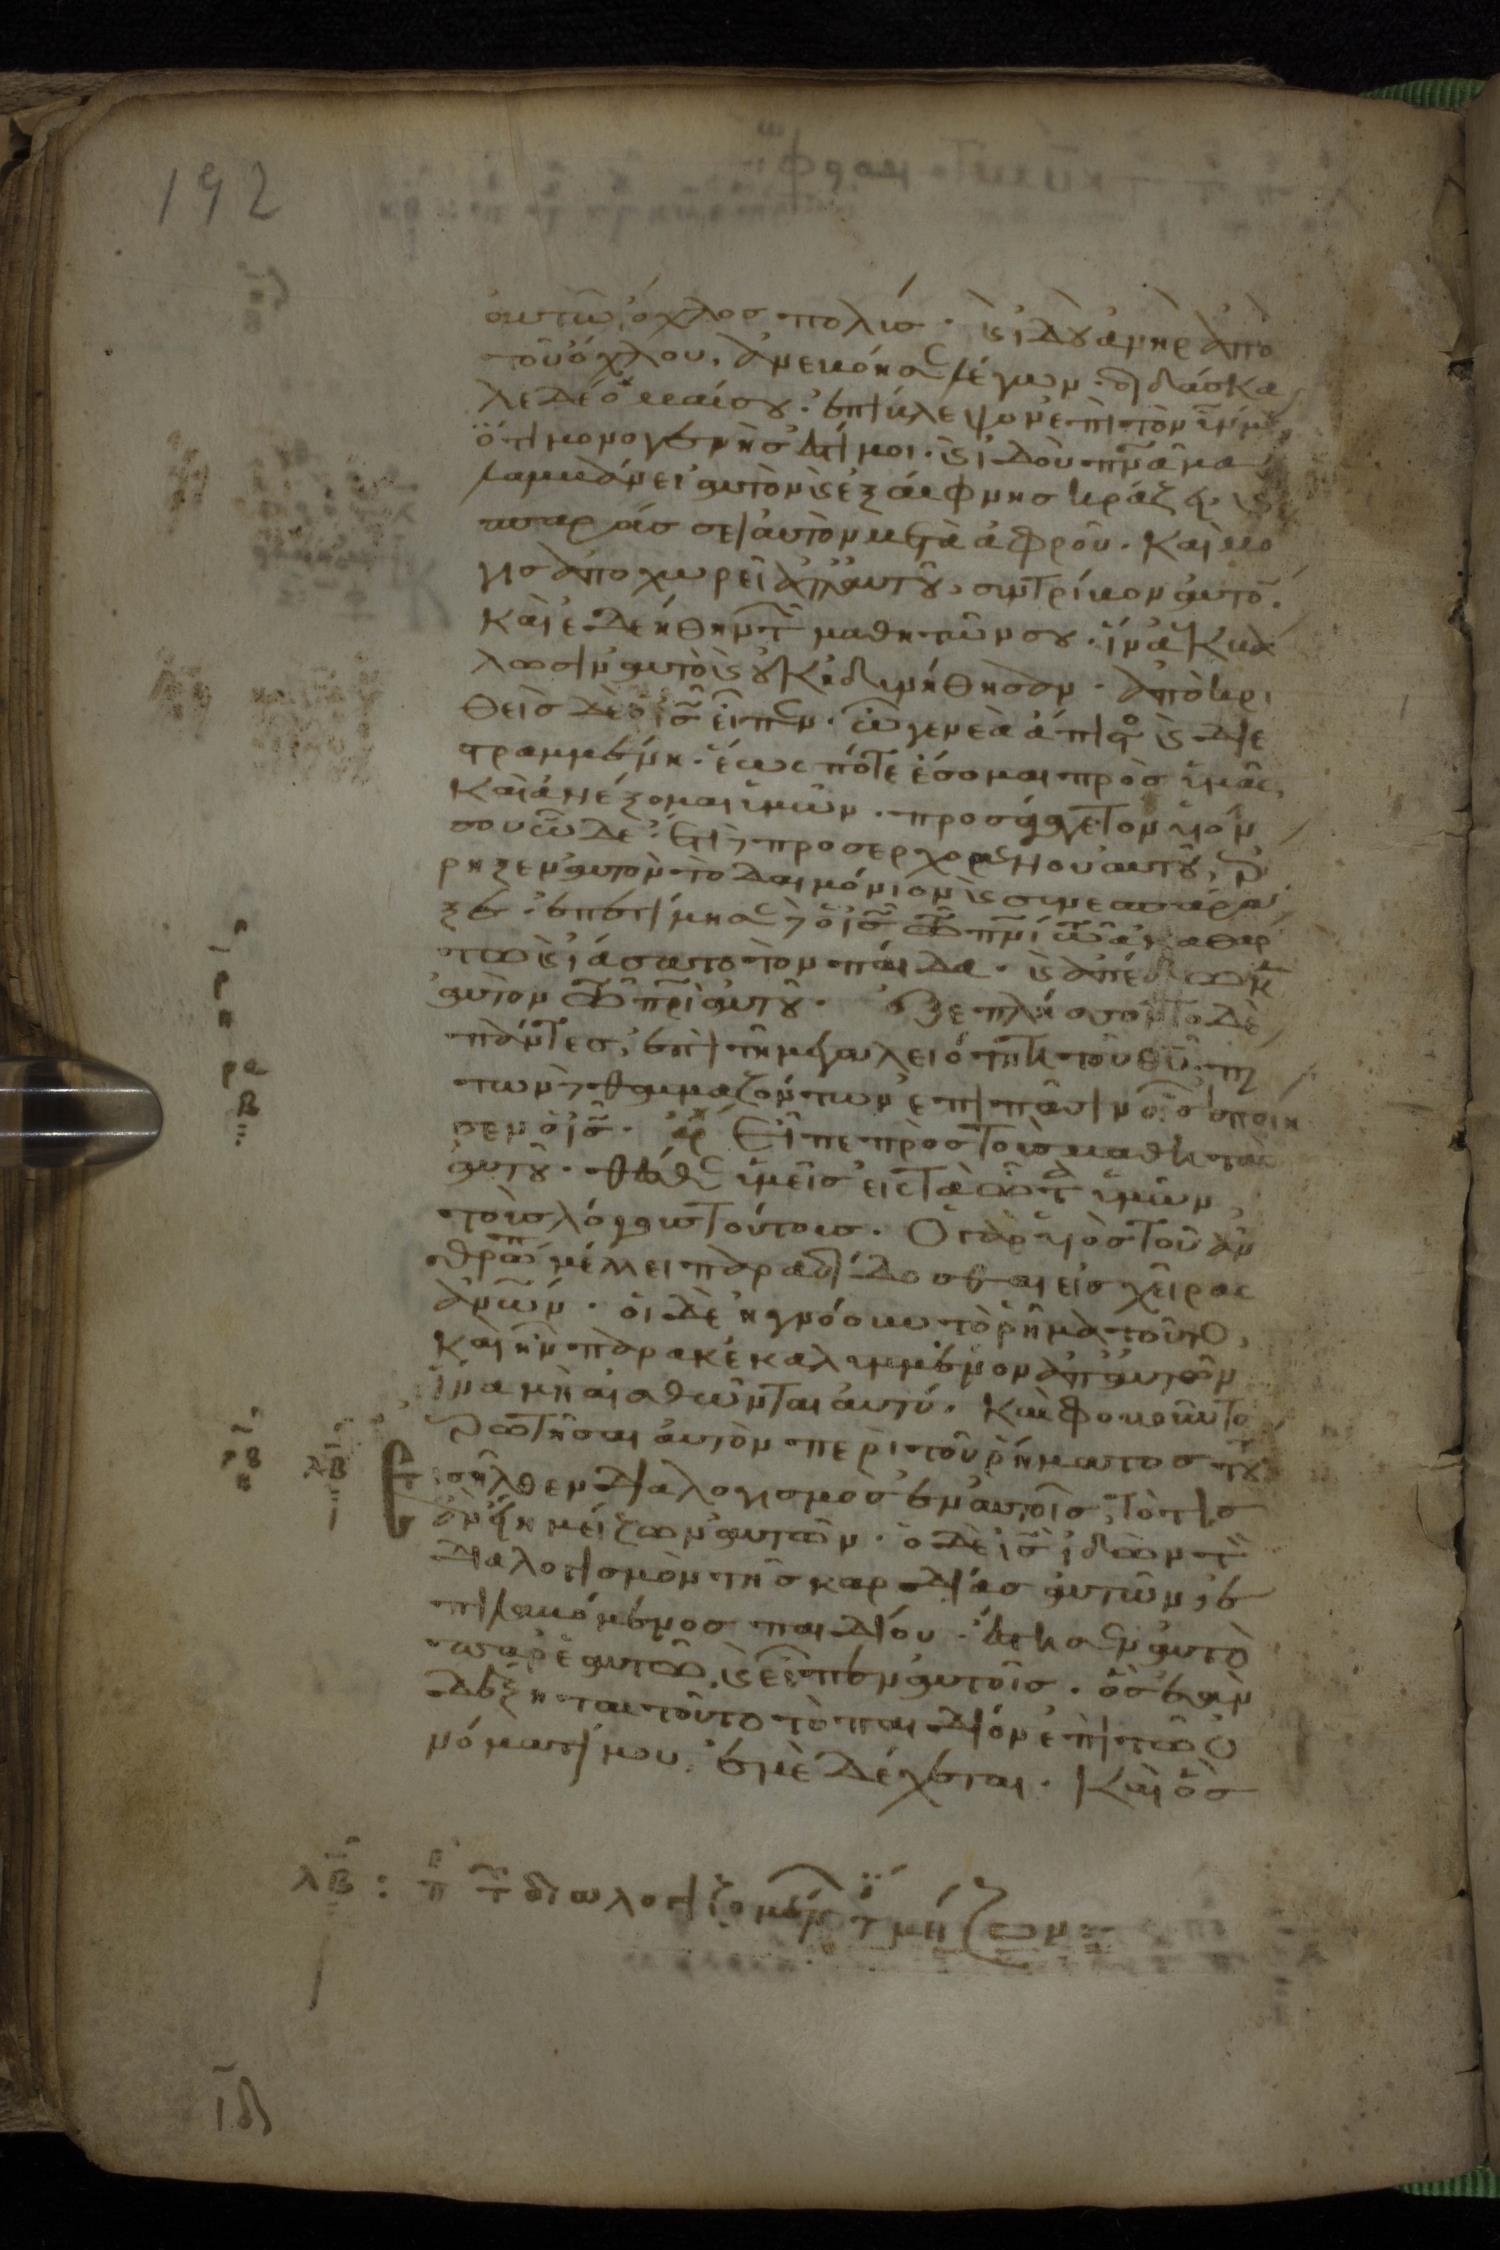 192
αυτῶ ὄχλος πολύς · κ ἰδοὺ ἀνὴρ ἀπὸ
τοῦ ὄχλου, ἀνεβόησε λέγων · διδάσκα
λε δέομαί σου · ἐπίβλεψον ἐπὶ τὸν υἱόν μου,
ὅτι μονογενής ἐστί μοι · κ ἰδοὺ πνα
λαμβάνει αὐτὸν κ ἐξαίφνης κράζει · κ
σπαράσσει αὐτὸν μετὰ ἀφροῦ · Καὶ μό
γις ἀποχωρεῖ ἀπ αὐτοῦ, συντρίβον αὐτό ·
Καὶ ἐδεήθην τ μαθητῶν σου · ἵνα ἐκβά
λωσιν αὐτὸ κ οὐκ ἠδυνήθησαν · ἀποκρι
θεὶς δὲ ὁ ις εἶπεν · ὦ γενεὰ ἄπιστο κ διε
στραμμένη · ἕως πότε ἔσομαι πρὸς ὑμᾶς,
Καὶ ἀνέξομαι ὑμῶν · προσάγαγε τὸν υἱόν
σου ὧδε · ἔτι προσερχομένου αὐτοῦ, ἔρ
ρηξεν αὐτὸν τὸ δαιμόνιον κ συνεσπάρα
ξεν · ἐπετίμησε ὁ ις τῶ πνι τῶ ἀκαθάρ
τω κ ἰάσατο τὸν παῖδα · κ ἀπέδωκ
αὐτὸν τῶ πρι αὐτοῦ · Ἐξεπλήσσοντο δὲ
πάντες, ἐπὶ τῆ μεγαλειότητι τοῦ θυ · πν
των θαυμαζόντων ἐπὶ πᾶσιν οἷς ἐποίη
σεν ὁ ις · Εἶπε πρὸς τοὺς μαθητὰς
αὐτοῦ · θέσθε ὑμεῖς εἰς τὰ ὦτ ὑμῶν,
τοὺς λόγους τούτους · Ὁ γὰρ υἱὸς τοῦ ἀν
θρωπ μέλλει παραδίδοσθαι εἰς χεῖρας
ἀνων · οἱ δὲ ἠγνόουν τὸ ῥῆμα τοῦτο,
Καὶ ἦν παρακεκαλυμμένον ἀπ αὐτῶν
ἵνα μὴ αἴσθωνται αὐτό · Καὶ ἐφοβοῦντο
ἐρωτῆσαι αὐτὸν περὶ τοῦ ῥήματος του
Εἰσῆλθεν διαλογισμὸς ἐν αὐτοῖς, τὸ τίς
ἂν εἴη μείζων αὐτῶν · ὁ δὲ ις ἰδὼν τ
διαλογισμὸν τῆς καρδίας αὐτῶν, ἐ
πιλαβόμενος παιδίου · ἔστησεν αὐτὸ
παρ ἑαυτῶ, κ εἶπεν αὐτοῖς · ὃς ἐὰν
δέξηται τοῦτο τὸ παιδίον ἐπὶ τῶ ὀ
νόματί μου · ἐμὲ δέχεται · Καὶ ὃς
ρα
β
ρβ
η
λβ
λβ : π τ διαλογιζομέν τ μείζων
ιδ